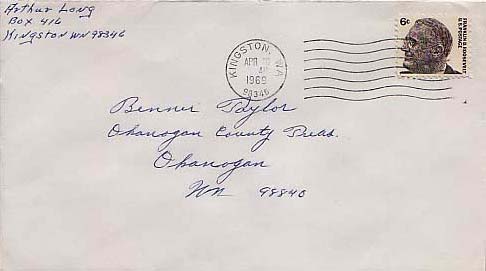 Arthur Long
Box 416
Kingston WN 98346
KINGSTON, WA
APR
AM
1969
98346
6¢
FRANKLIN D. ROOSEVELT
U.S. POSTAGE
Benner Taylor
Okanogan County Treas.
Okanogan
Wn 98840